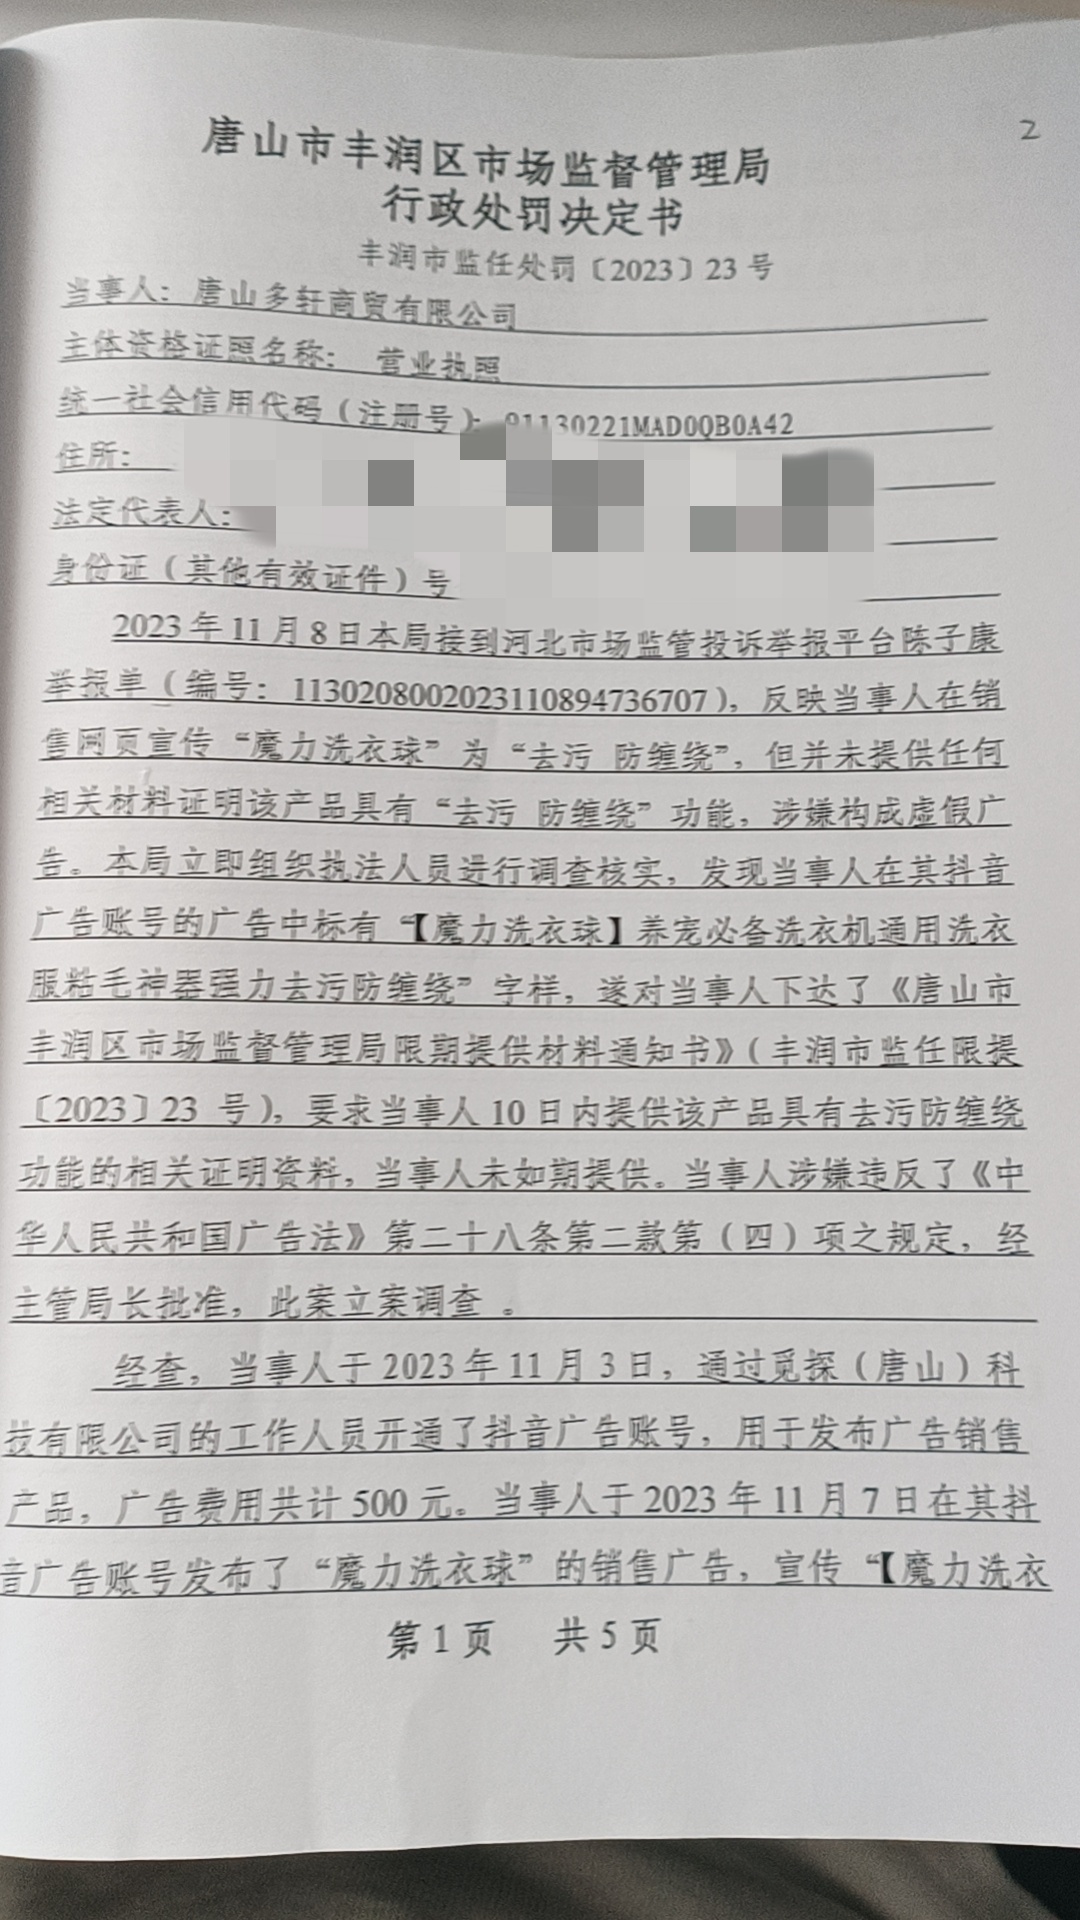 2
唐山市丰润区市场监督管理局
行政处罚决定书
丰润市监任处罚〔2023〕23号
当事人：唐山多轩商贸有限公司
主体资格证照名称： 营业执照
统一社会信用代码（注册号）：91130221MAD0QB0A42
住所：
法定代表人：
身份证（其他有效证件）号
2023年11月8日本局接到河北市场监管投诉举报平台陈子康
举报单（编号：1130208002023110894736707），反映当事人在销
售网页宣传“魔力洗衣球”为“去污 防缠绕”，但并未提供任何
相关材料证明该产品具有“去污 防缠绕”功能，涉嫌构成虚假广
告。本局立即组织执法人员进行调查核实，发现当事人在其抖音
广告账号的广告中标有“【魔力洗衣球】养宠必备洗衣机通用洗衣
服粘毛神器强力去污防缠绕”字样，遂对当事人下达了《唐山市
丰润区市场监督管理局限期提供材料通知书》（丰润市监任限提
〔2023〕23 号），要求当事人10日内提供该产品具有去污防缠绕
功能的相关证明资料，当事人未如期提供。当事人涉嫌违反了《中
华人民共和国广告法》第二十八条第二款第（四）项之规定，经
主管局长批准，此案立案调查 。
经查，当事人于2023年11月3日，通过觅探（唐山）科
技有限公司的工作人员开通了抖音广告账号，用于发布广告销售
产品，广告费用共计500元。当事人于2023年11月7日在其抖
音广告账号发布了“魔力洗衣球”的销售广告，宣传“【魔力洗衣
第1页 共5页